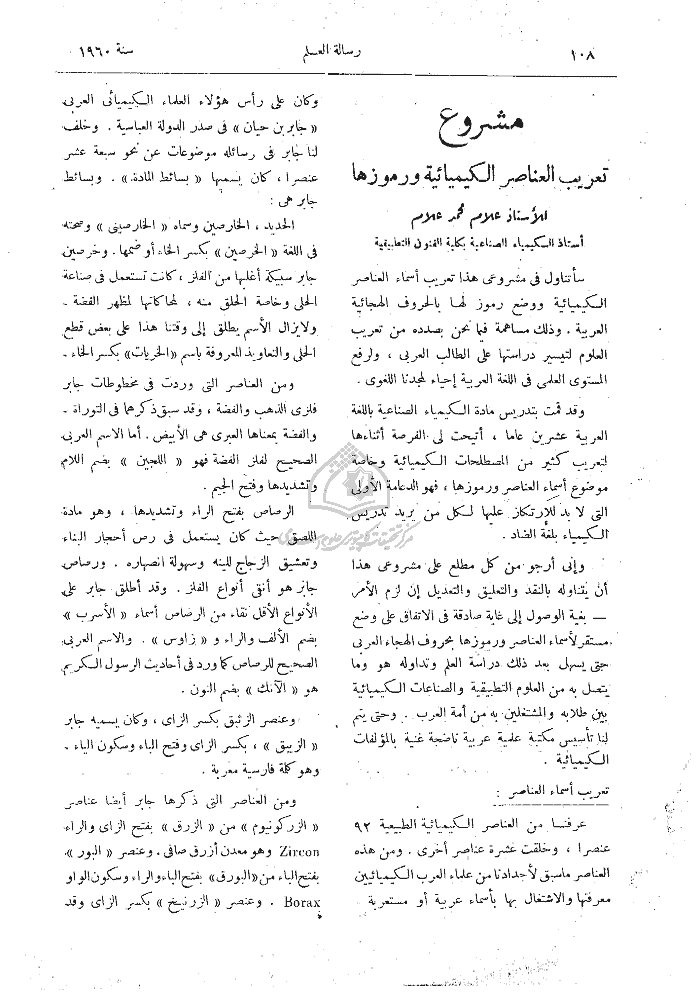 ١٠٨
رسالة العلم
سنة ١٩٦٠
مشروع
تعريب العناصر الكيميائية ورموزها
للأستاذ علام محمد علام
أستاذ الكيمياء الصناعية بكلية الفنون التطبيقية
سأتناول فى مشروعى هذا تعريب أسماء العناصر
الكيميائية ووضع رموز لها بالحروف الهجائية
العربية . وذلك مساهمة فيما نحن بصدده من تعريب
العلوم لتيسير دراستها على الطالب العربى ، ولرفع
المستوى العلمى فى اللغة العربية إحياء لمجدنا اللغوى .
وقد قمت بتدريس مادة الكيمياء الصناعية باللغة
العربية عشرين عاما ، أتيحت لى الفرصة أثناءها
لتعريب كثير من المصطلحات الكيميائية وخاصة
موضوع أسماء العناصر ورموزها ، فهو الدعامة الأولى
التى لا بد للإرتكاز عليها لكل من يريد تدريس
الكيمياء بلغة الضاد .
وإنى أرجو من كل مطلع على مشروعى هذا
أن يتناوله بالنقد والتعليق والتعديل إن لزم الأمر
— بغية الوصول إلى غاية صادقة فى الاتفاق على وضع
مستقر لأسماء العناصر ورموزها بحروف الهجاء العربى
حتى يسهل بعد ذلك دراسة العلم وتداوله هو وما
يتصل به من العلوم التطبيقية والصناعات الكيميائية
بين طلابه والمشتغلين به من أمة العرب . وحتى يتم
لنا تأسيس مكتبة علمية عربية ناضجة غنية بالمؤلفات
الكيميائية .
تعريب أسماء العناصر :
عرفنا من العناصر الكيميائية الطبيعية ٩٢
عنصرا ، وخلقت عشرة عناصر أخرى . ومن هذه
العناصر ماسبق لأجدادنا من علماء العرب الكيميائيين
معرفتها والاشتغال بها بأسماء عربية أو مستعربة
وكان على رأس هؤلاء العلماء الكيميائى العربى
« جابر بن حيان » فى صدر الدولة العباسية . وخلف
لنا جابر فى رسائله موضوعات عن نحو سبعة عشر
عنصرا ، كان يسميها « بسائط المادة » . وبسائط
جابر هى :
الحديد ، الخارصين وسماه « الخارصينى » وصحته
فى اللغة « الخرصين » بكسر الخاء أو ضمها . وخرصين
جابر سبيكة أغلبها من الفلز ، كانت تستعمل فى صناعة
الحلى وخاصة الحلق منه ، لمحاكاتها لمظهر الفضة .
ولايزال الأسم يطلق إلى وقتنا هذا على بعض قطع
الحلى والتعاويذ المعروفة باسم «الخريات» بكسر الخاء .
ومن العناصر التى وردت فى مخطوطات جابر
فلزى الذهب والفضة ، وقد سبق ذكرهما فى التوراة .
والفضة بمعناها العبرى هى الأبيض . أما الاسم العربى
الصحيح لفلز الفضة فهو « اللجين » بضم اللام
وتشديدها وفتح الجيم .
الرصاص بفتح الراء وتشديدها ، وهو مادة
اللصق حيث كان يستعمل فى رص أحجار البناء
وتعشيق الزجاج للينه وسهولة انصهاره . ورصاص
جابر هو أنقى أنواع الفلز . وقد أطلق جابر على
الأنواع الأقل نقاء من الرصاص أسماء « الأسرب »
بضم الألف والراء و « زاوس » . والاسم العربى
الصحيح للرصاص كما ورد فى أحاديث الرسول الكريم
هو « الآنك » بضم النون .
وعنصر الزئبق بكسر الزاى ، وكان يسميه جابر
« الزيبق » ، بكسر الزاى وفتح الباء وسكون الياء .
وهو كلمة فارسية معربة .
ومن العناصر التى ذكرها جابر أيضا عناصر
« الزركونيوم » من « الزرق » بفتح الزاى والراء
Zircon وهو معدن أزرق صافى . وعنصر « البور »
بفتح الباء من «البورق» بفتح الباء والراء وسكون الواو
Borax . وعنصر « الزرنيخ » بكسر الزاى وقد